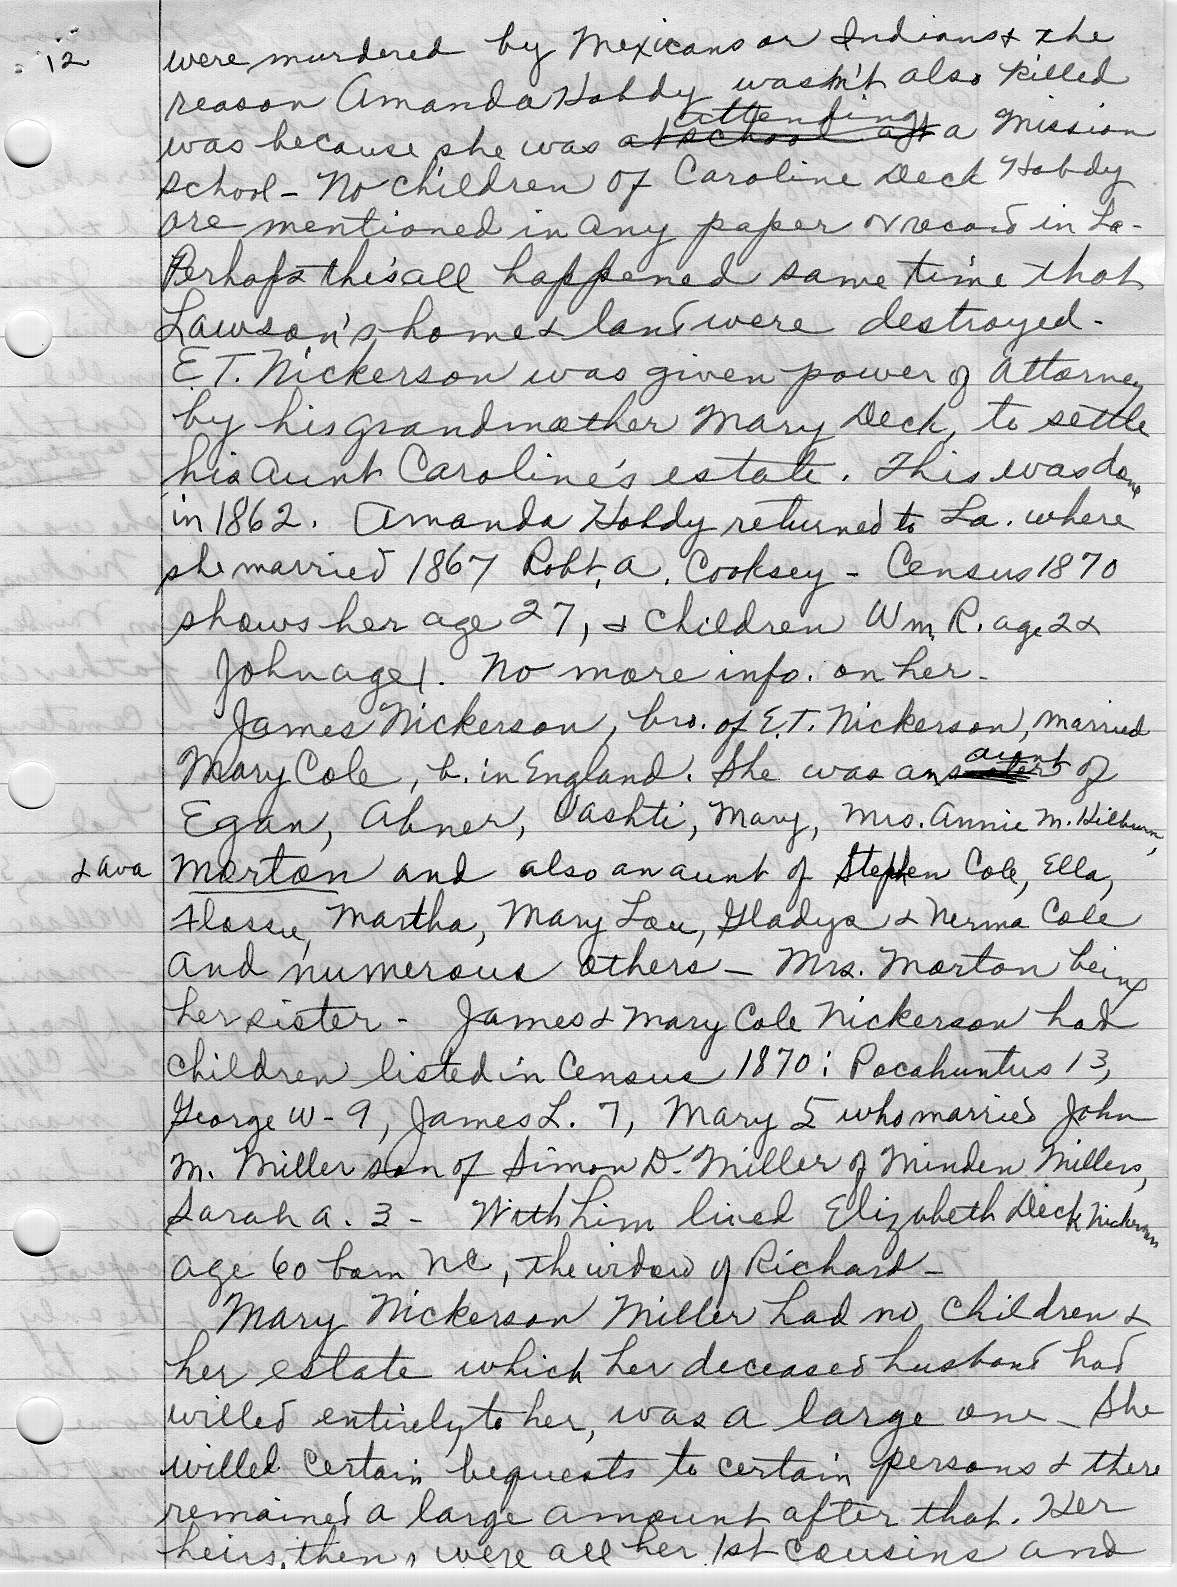 12
were murdered by Mexicans or Indians & the
reason Amanda Hobdy wasn't also killed
was because she was attending a Mission
school - No children of Caroline Deck Hobdy
are mentioned in any paper or record in La -
Perhaps this all happened same time that
Lawson's home & land were destroyed.
E.T. Nickerson was given power of Attorney
by his grandmother Mary Deck, to settle
his aunt Caroline's estate. This was done
in 1862. Amanda Hobdy returned to La. where
she married 1867 Robt. A. Cooksey - Census 1870
shows her age 27, & children Wm R. age 2 &
John age 1. No more info. on her -
James Nickerson, bro. of E.T. Nickerson, married
Mary Cole, b. in England. She was an aunt of
Egan, Abner, Vashti, Mary, Mrs. Annie M. Hilburn,
& ava Morton and also an aunt of Stephen Cole, Ella,
Flossie, Martha, Mary Lou, Gladys & Nerma Cole
and numerous others - Mrs. Morton being
her sister - James & Mary Cole Nickerson had
children listed in Census 1870: Pocahuntus 13,
George W - 9, James L. 7, Mary 5 who married John
M. Miller son of Simon D. Miller of Minden Millers,
Sarah A. 3 - With him lived Elizabeth Deck Nickerson
age 60 born NC, the widow of Richard -
Mary Nickerson Miller had no children &
her estate which her deceased husband had
willed entirely to her, was a large one - She
willed certain bequests to certain persons & there
remained a large amount after that. Her
heirs, then, were all her 1st cousins and